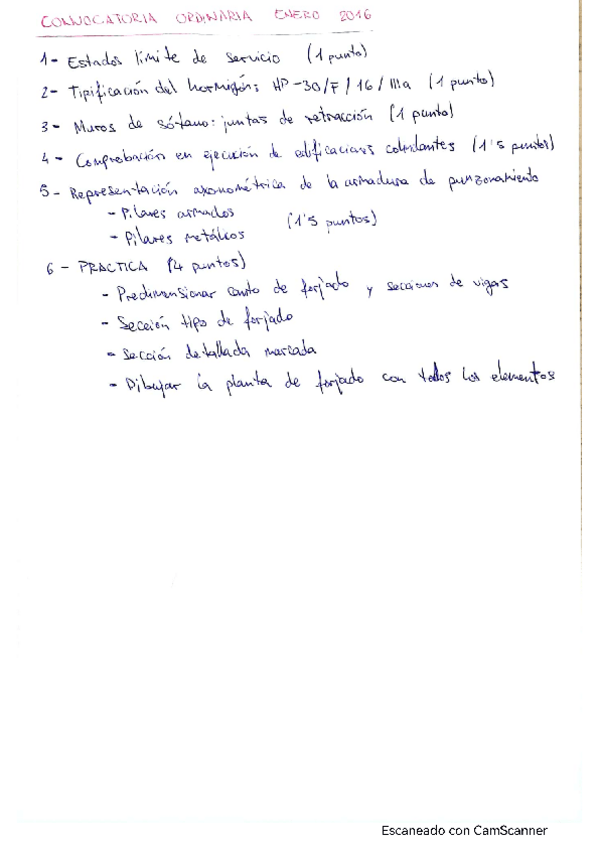 CONVOCATORIA ORDINARIA ENERO 2016
1- Estados límite de servicio (1 punto)
2- Tipificación del hormigón: HP-30/F/16/IIIa (1 punto)
3- Muros de sótano: juntas de retracción (1 punto)
4- Comprobación en ejecución de edificaciones colindantes (1'5 puntos)
5- Representación axonométrica de la armadura de punzonamiento
- Pilares armados
(1'5 puntos)
- Pilares metálicos
6- PRACTICA (4 puntos)
- Predimensionar canto de forjado y secciones de vigas
- Sección tipo de forjado
- Sección detallada marcada
- Dibujar la planta de forjado con todos los elementos
Escaneado con CamScanner